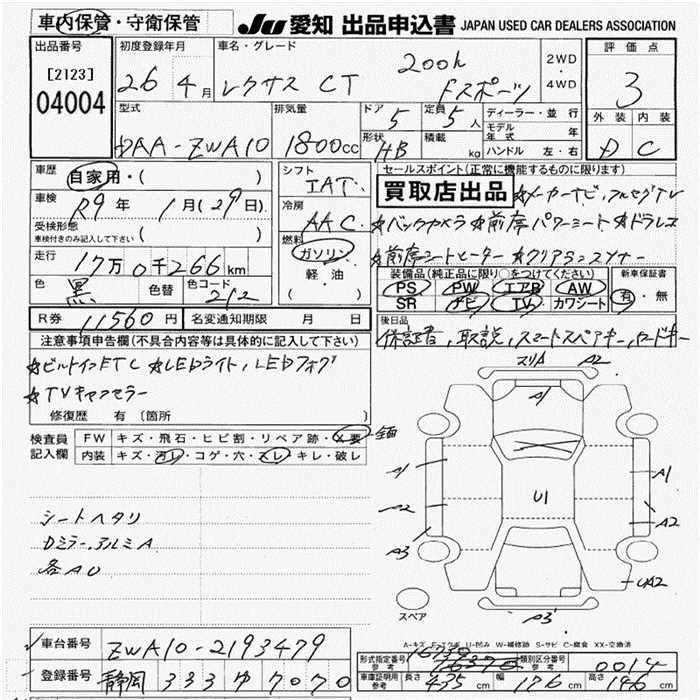 車内保管・守衛保管 JU 愛知 出品申込書 JAPAN USED CAR DEALERS ASSOCIATION
出品番号 初度登録年月 車名・グレード 2WD・4WD 評価点
[2123] 26年 4月 レクサス CT 200h Fスポーツ 3
04004
型式 排気量 ドア 5 定員 5人 ディーラー・並行 外装 内装
DAA-ZWA10 1800cc 形状 HB 積載 kg モデル年式 年 D C
ハンドル 左・右
車歴 自家用・( ) シフト IAT セールスポイント(正常に機能するものに限ります)
車検 R9年 1月(29日) 冷房 AAC 買取店出品 ☆メーカーナビ,フルセグTV
受検形態 車検付きのみ記入して下さい ( ) ☆バックカメラ ☆前席パワーシート ☆ドラレコ
走行 17万0千266km 燃料 ガソリン 軽・油 ( ) ☆前席シートヒーター ☆クリアランスソナー
色 黒 色替 色コード 212 装備品(純正品に限り○をつけてください) 新車保証書
PS PW エアB AW 有・無
SR ナビ TV カワシート
R券 11560円 名変通知期限 月 日 後日品
保証書,取説,スマートスペアキー,カードキー
注意事項申告欄(不具合内容等は具体的に記入して下さい)
☆ビルトインETC ☆LEDライト,LEDフォグ
☆TVキャンセラー
修復歴 有 (箇所 )
検査員記入欄 FW キズ・飛石・ヒビ割・リペア跡・X要
内装 キズ・汚レ・コゲ・穴・スレ・キレ・破レ
スリA A2
A1
A1 A1
U1
A2 A2
A3 UA2
A3
シートヘタリ
Dミラー,アルミA
各AU
スペア
A-キズ U-凹み W-補修跡 S-サビ C-腐食 XX-交換済
車台番号 ZWA10-2193479
登録番号 静岡 333 ゆ 7070
形式指定番号 参考 16730 類別区分番号 参考 0014
車庫証明用 参考 長さ 435cm 幅 176cm 高さ 146cm